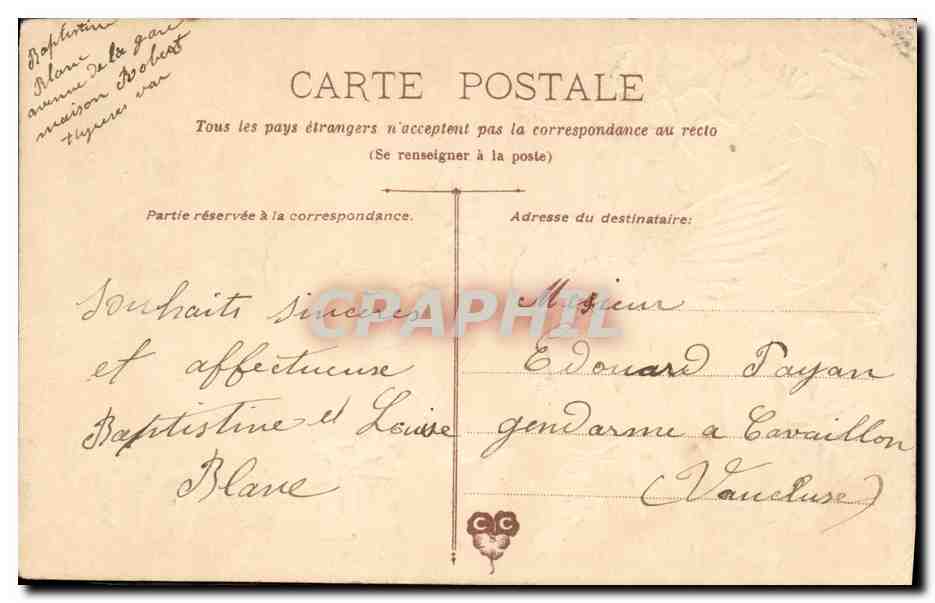 Baptistine
Blanc
avenue de la gare
maison Robert
Hyeres var
CARTE POSTALE
Tous les pays étrangers n'acceptent pas la correspondance au recto
(Se renseigner à la poste)
Partie réservée à la correspondance.
Adresse du destinataire:
Souhaits sinceres
et affectueuse
Baptistine et Louise
Blanc
Mesieur
Edouard Payan
gendarme a Cavaillon
(Vaucluse)
CPAPHIL
C C